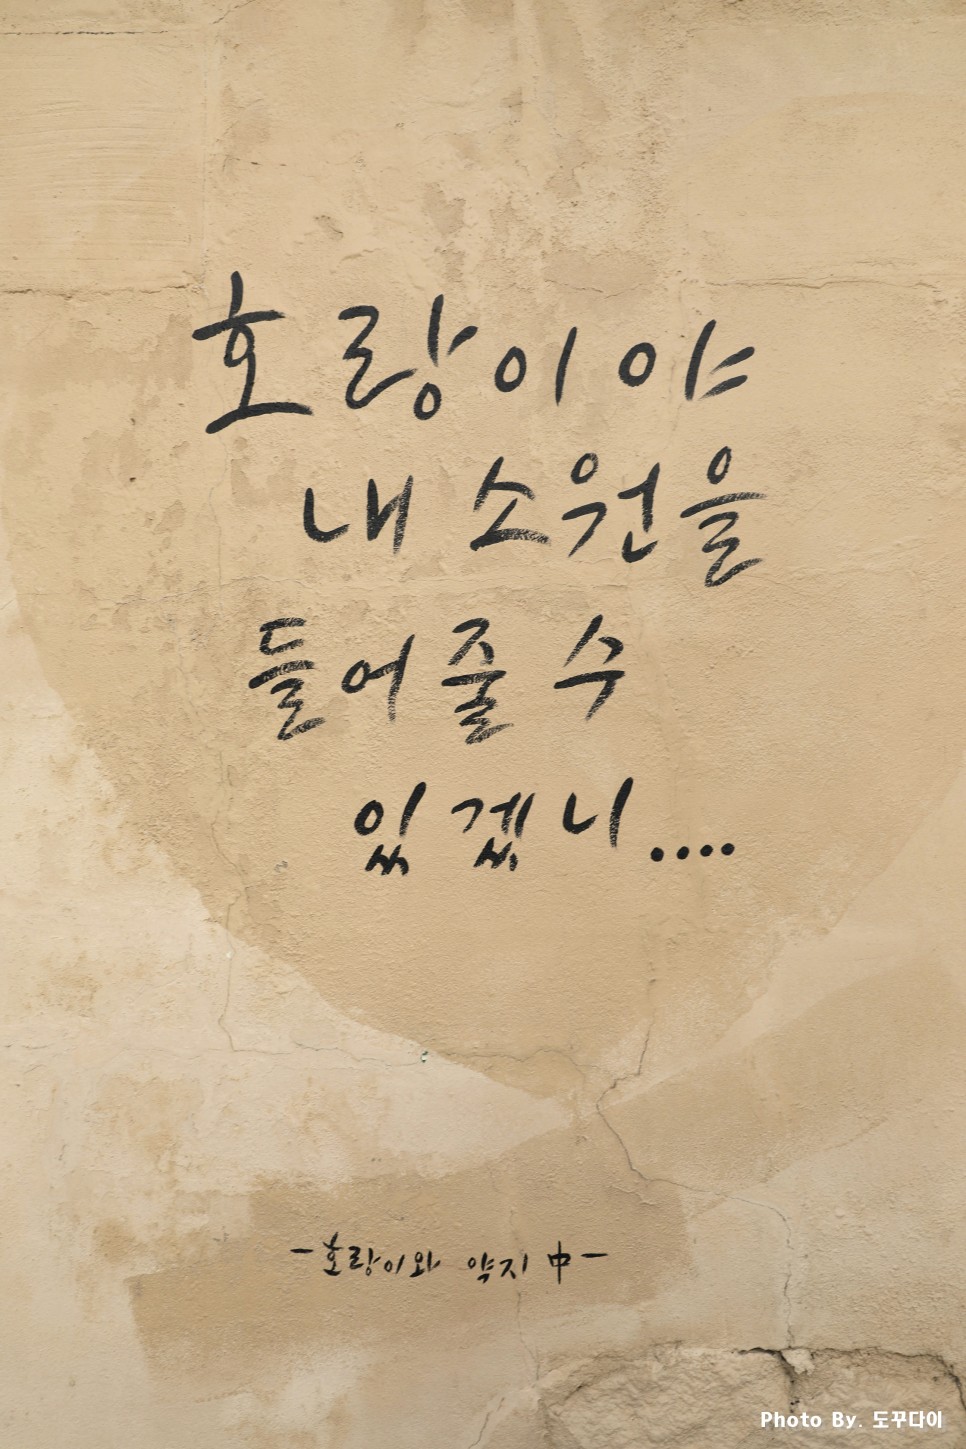 호랑이야
내 소원을
들어줄 수
있겠니....
-호랑이와 약지 中-
Photo By. 도꾸다이